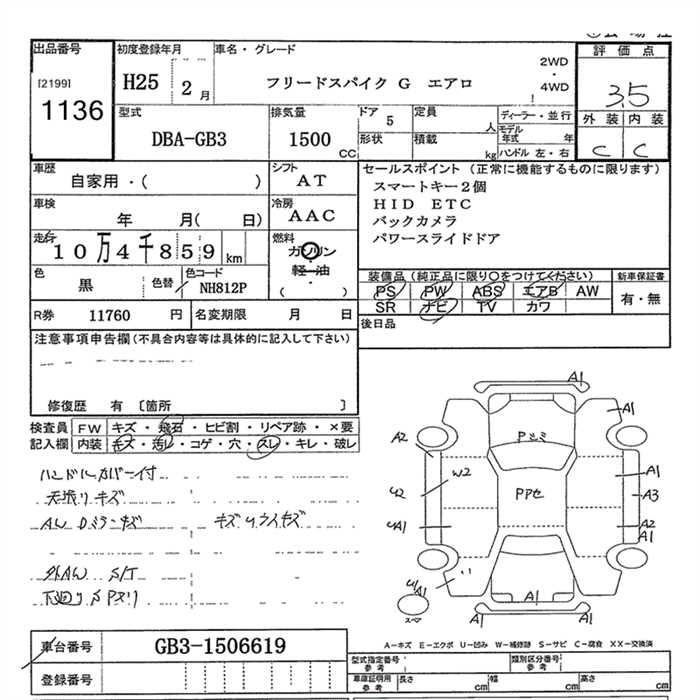 出品番号
[2199]
1136
初度登録年月
H25 2月
車名・グレード
フリードスパイク G エアロ
2WD
・
4WD
評価点
3.5
外装 内装
C C
型式
DBA-GB3
排気量
1500 CC
ドア 5
定員 人
形状
積載 kg
ディーラー・並行
モデル年式 年
ハンドル 左・右
車歴
自家用・( )
シフト
AT
車検
年 月( 日)
冷房
AAC
走行
10万4千859 km
燃料
ガソリン
軽油
( )
色
黒
色替
色コード
NH812P
R券 11760 円
名変期限 月 日
セールスポイント (正常に機能するものに限ります)
スマートキー2個
HID ETC
バックカメラ
パワースライドドア
装備品 (純正品に限り○をつけてください)
PS PW ABS エアB AW
SR ナビ TV カワ
新車保証書
有・無
後日品
注意事項申告欄 (不具合内容等は具体的に記入して下さい)
修復歴 有 〔箇所 〕
検査員記入欄
FW キズ・飛石・ヒビ割・リペア跡・×要
内装 キズ・汚レ・コゲ・穴・スレ・キレ・破レ
ハンドルカバー付
天張りキズ
外AW S/T
A1
A1
A2
W2
A1
A3
A2
A1
A1
A1
車台番号 GB3-1506619
登録番号
A-キズ E-エクボ U-凹み W-補修跡 S-サビ C-腐食 XX-交換済
型式指定番号 参考
類別区分番号 参考
車庫証明用 参考
長さ cm
幅 cm
高さ cm